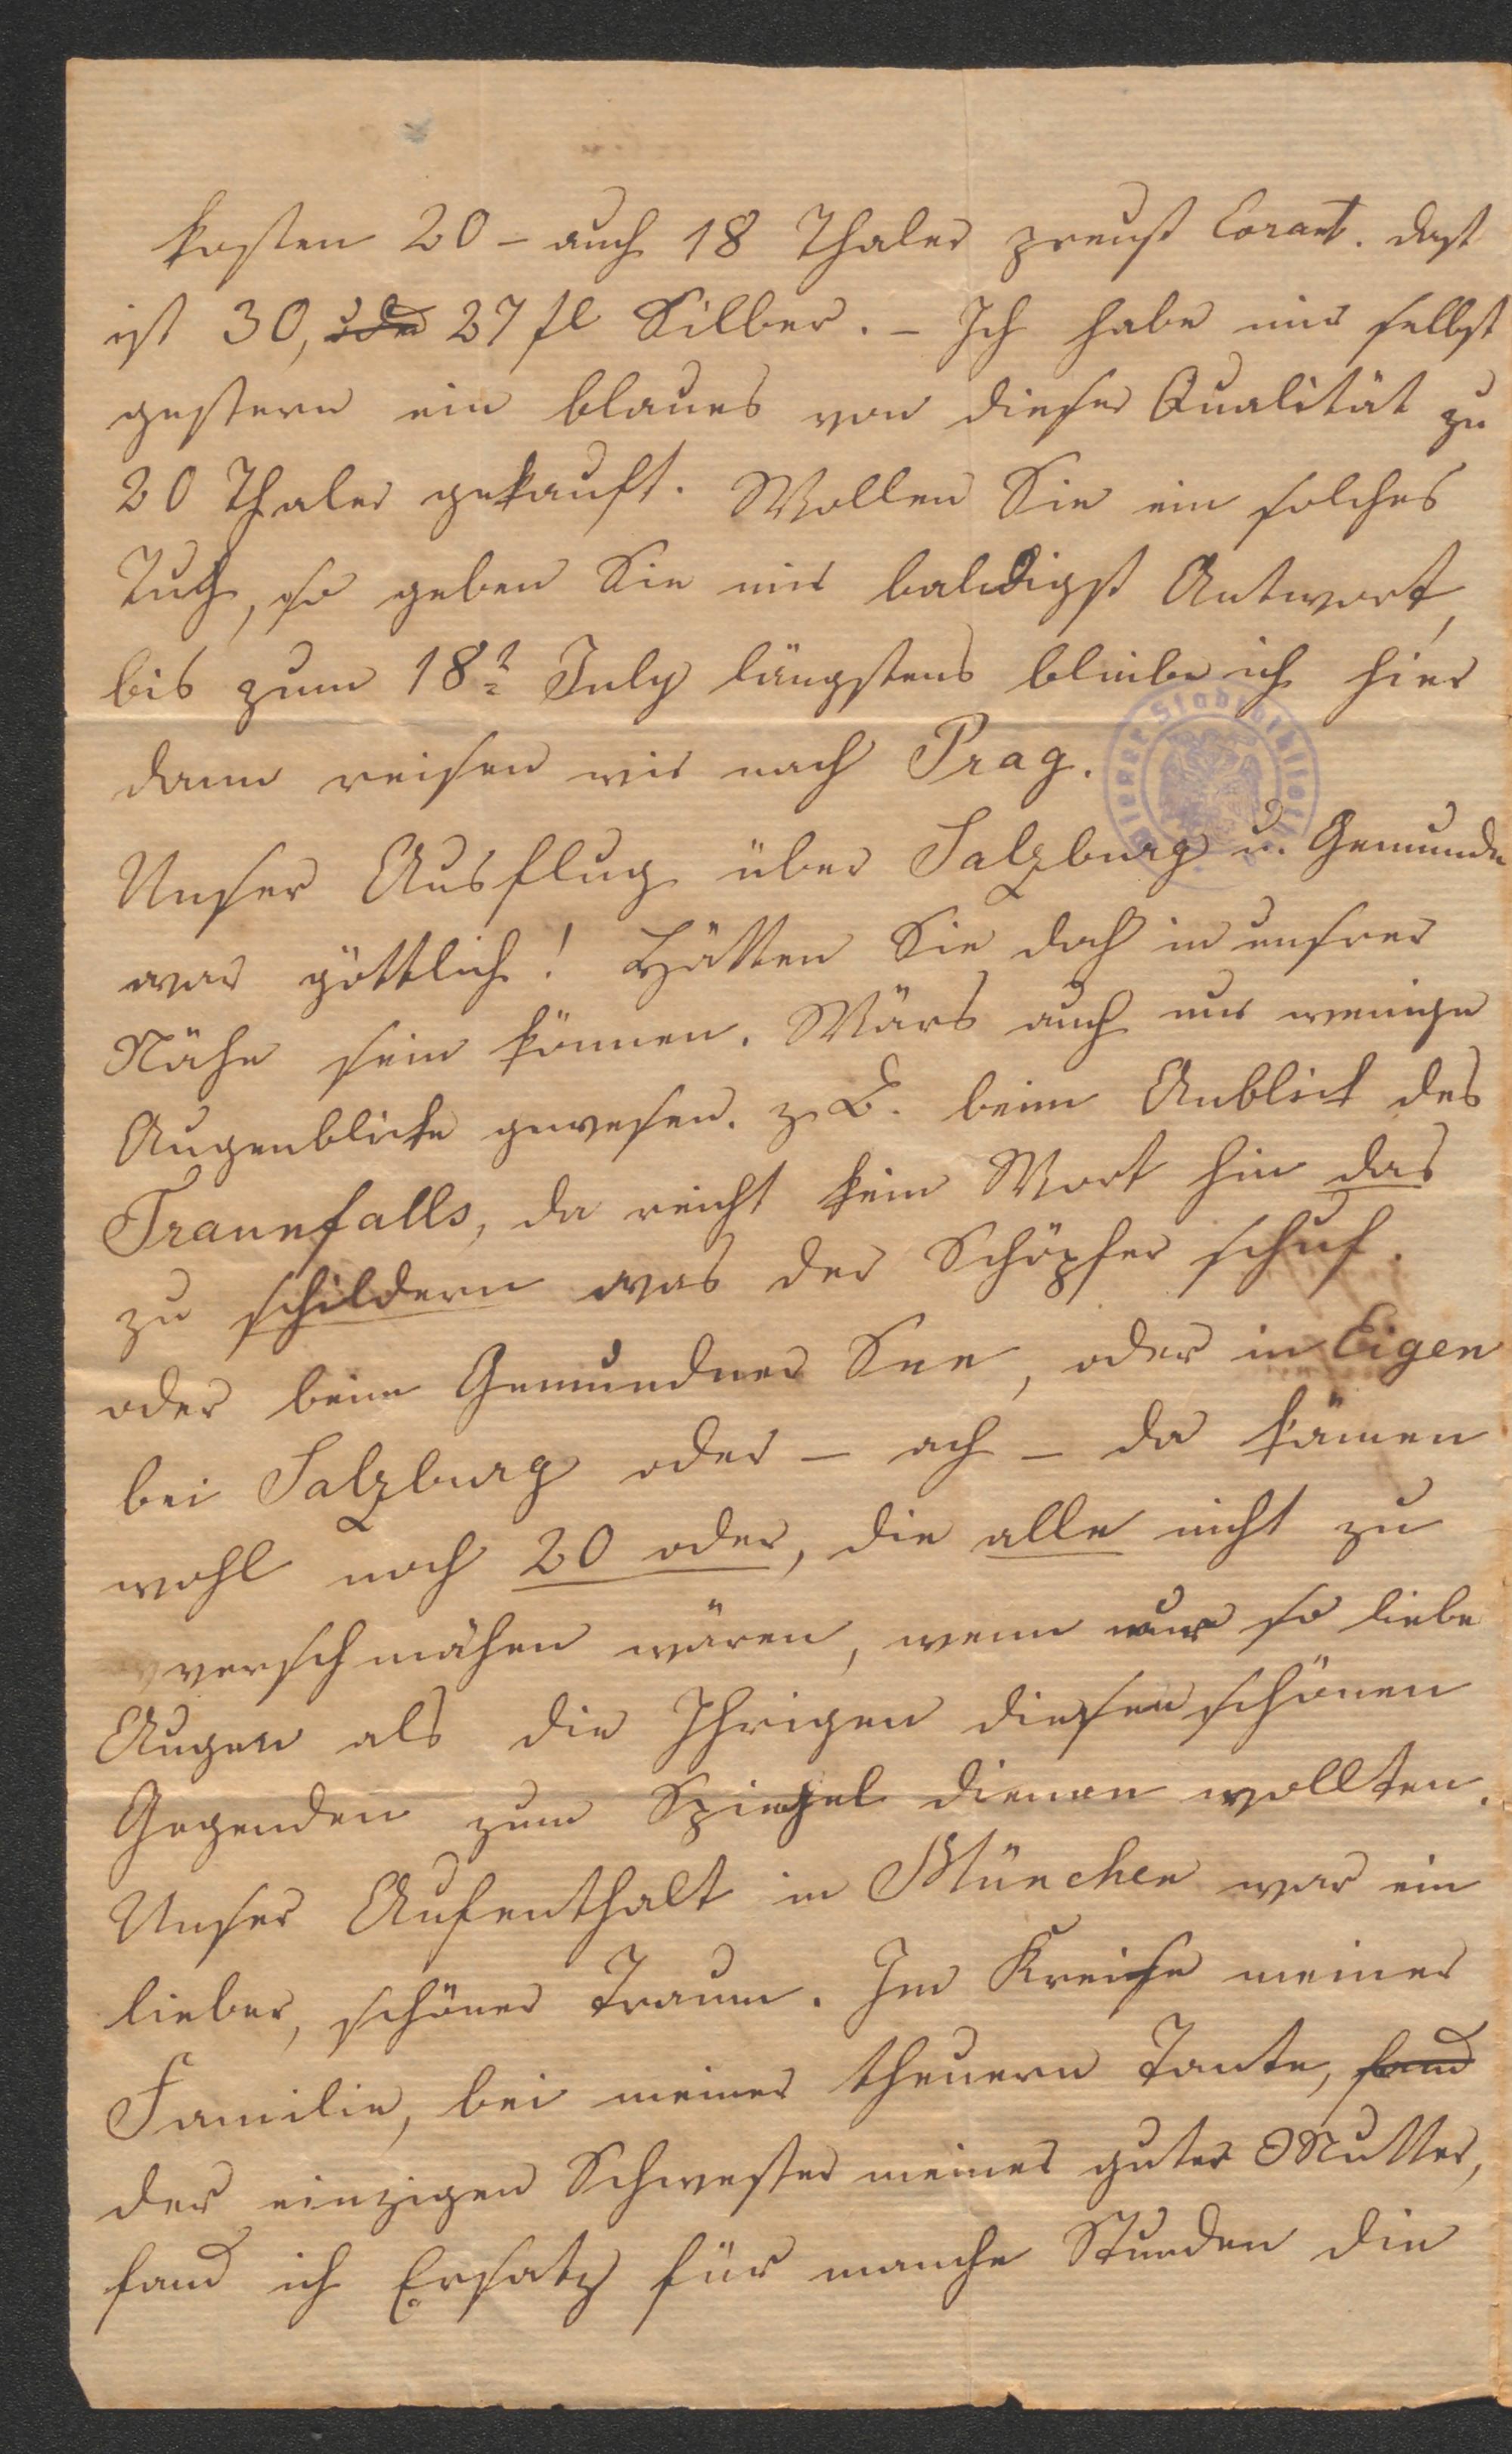 kosten 20 – auch 18 Thaler preuß Corant. daß
ist 30, oder 27 fl Silber. – Ich habe mir selbst
gestern ein blaues von dieser Qualität zu
20 Thaler gekauft. Wollen Sie ein solches
Tuch, so geben Sie mir baldigst Antwort,
bis zum 18t July längstens bleibe ich hier
dann reisen wir nach Prag.
Wiener Stadtbibliothek
Unser Ausflug über Salzburg u. Gemunden
war göttlich! Hätten Sie doch in unsrer
Nähe sein können. Wärs auch nur wenige
Augenblicke gewesen. z. B. beim Anblick des
Traunfalls, da reicht kein Wort hin das
zu schildern was der Schöpfer schuf.
oder beim Gemundner See, oder in Eigen
bei Salzburg oder – ach – da kämen
wohl noch 20 oder, die alle nicht zu
verschmähen wären, wenn nur so liebe
Augen als die Ihrigen diesen schönen
Gegenden zum Spiegel dienen wollten.
Unser Aufenthalt in München war ein
lieber, schöner Traum. Im Kreise meiner
Familie, bei meiner theuern Tante, fand
der einzigen Schwester meiner guter Mutter,
fand ich Ersatz für manche Stunden die